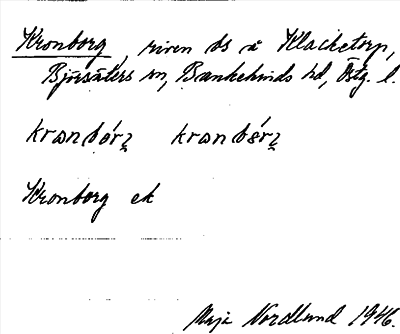 Kronborg, riven ds å Klacketorp,
Björsäters sn, Bankekinds hd, Östg. l.
kranbórʒ kranbórʒ
Kronborg ek
Maja Nordlund 1946.